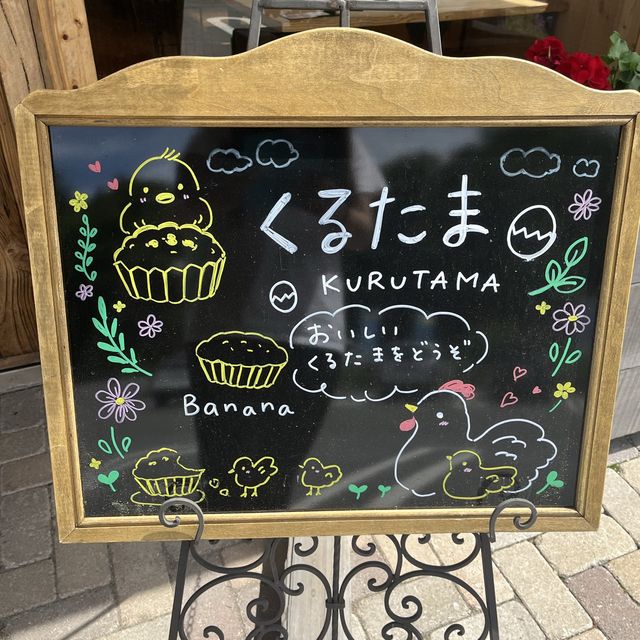 くるたま
KURUTAMA
おいしい
くるたまをどうぞ
Banana